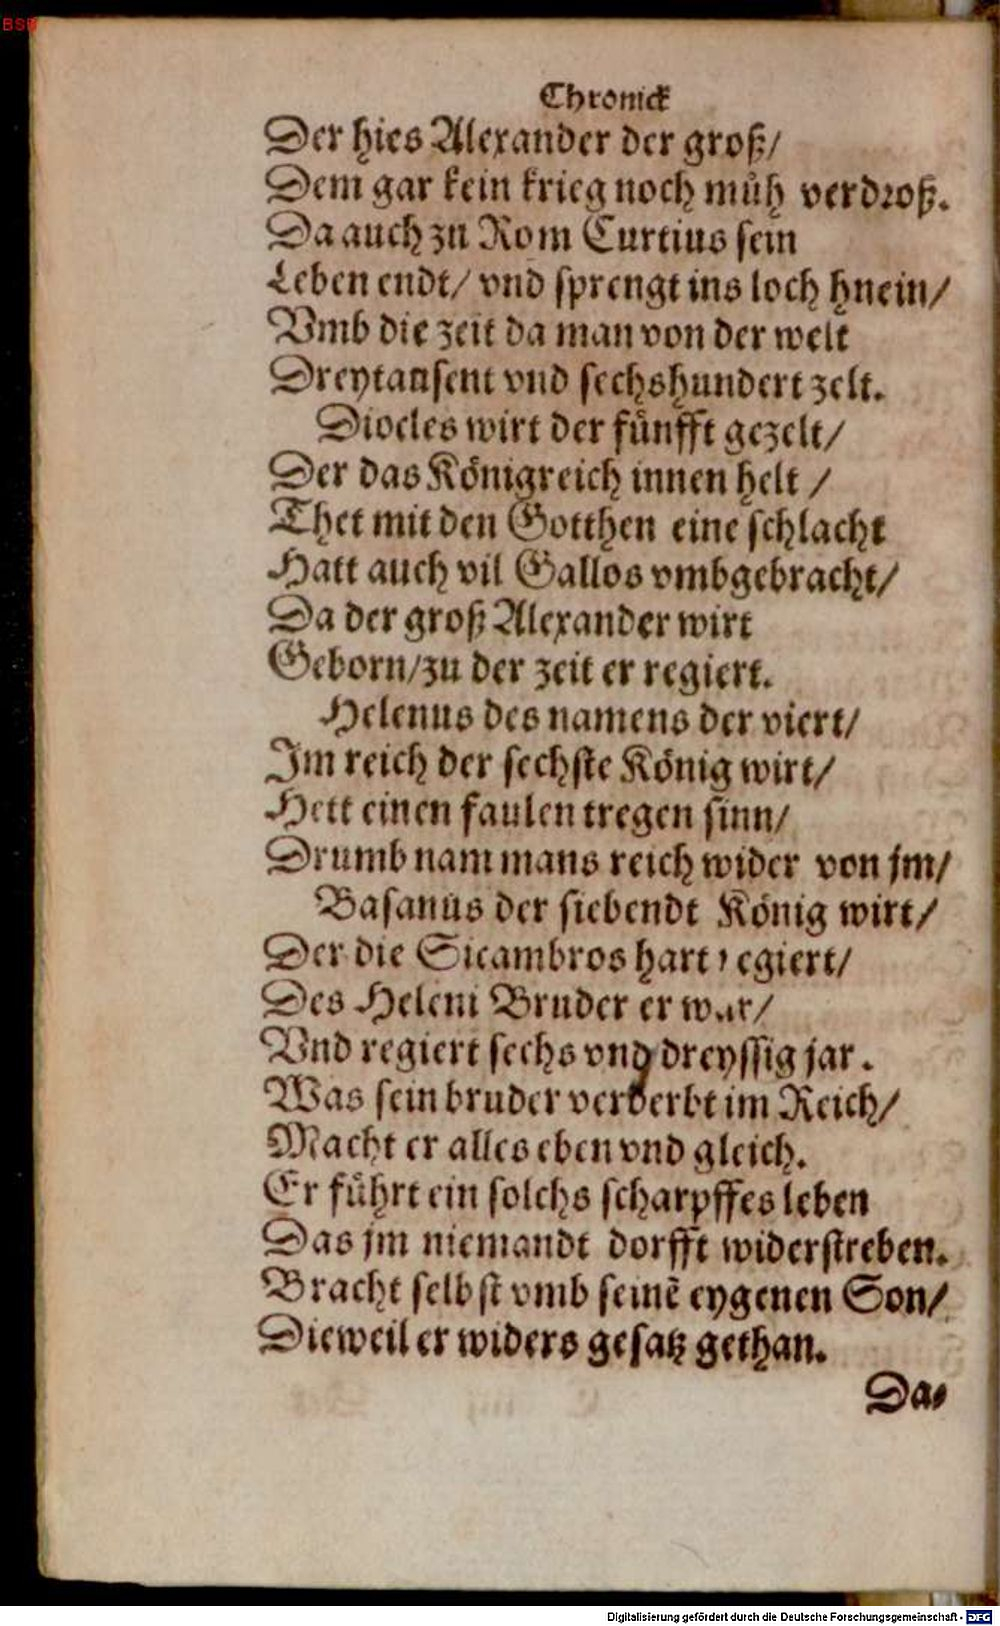 BSB
Chronick
Der hies Alexander der groß/
Dem gar kein krieg noch müh verdroß.
Da auch zu Rom Curtius sein
Leben endt/ vnd sprengt ins loch hnein/
Vmb die zeit da man von der welt
Dreytausent vnd sechshundert zelt.
Diocles wirt der fünfft gezelt/
Der das Königreich innen helt /
Thet mit den Gotthen eine schlacht
Hatt auch vil Gallos vmbgebracht/
Da der groß Alexander wirt
Geborn/zu der zeit er regiert.
Helenus des namens der viert/
Im reich der sechste König wirt/
Hett einen faulen tregen sinn/
Drumb nam mans reich wider von jm/
Basanus der siebendt König wirt/
Der die Sicambros hart regiert/
Des Heleni Bruder er war/
Vnd regiert sechs vnd dreyssig jar.
Was sein bruder verderbt im Reich/
Macht er alles eben vnd gleich.
Er führt ein solchs scharpffes leben
Das jm niemandt dorfft widerstreben.
Bracht selbst vmb seinē eygenen Son/
Dieweil er widers gesatz gethan.
Da⸗
Digitalisierung gefördert durch die Deutsche Forschungsgemeinschaft - DFG